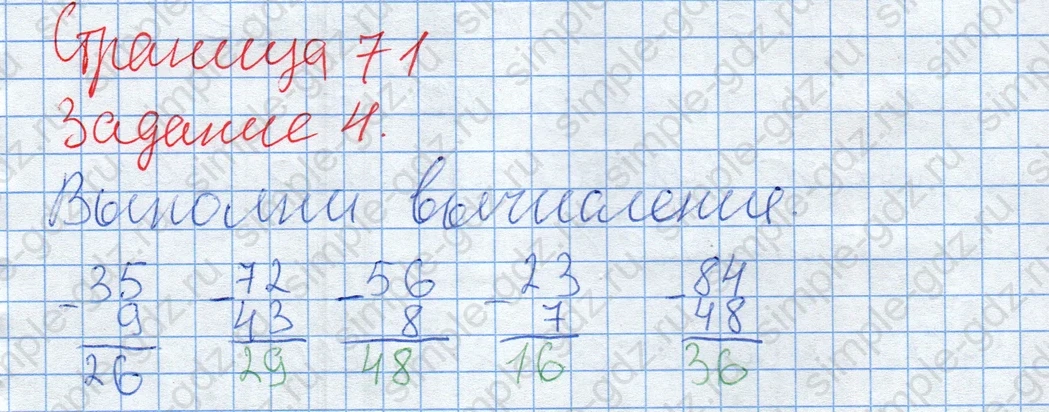 Страница 71
Задание 4.
Выполни вычисления.
-35 -72 -56 -23 -84
9 43 8 7 48
26 29 48 16 36
simple-gdz.ru